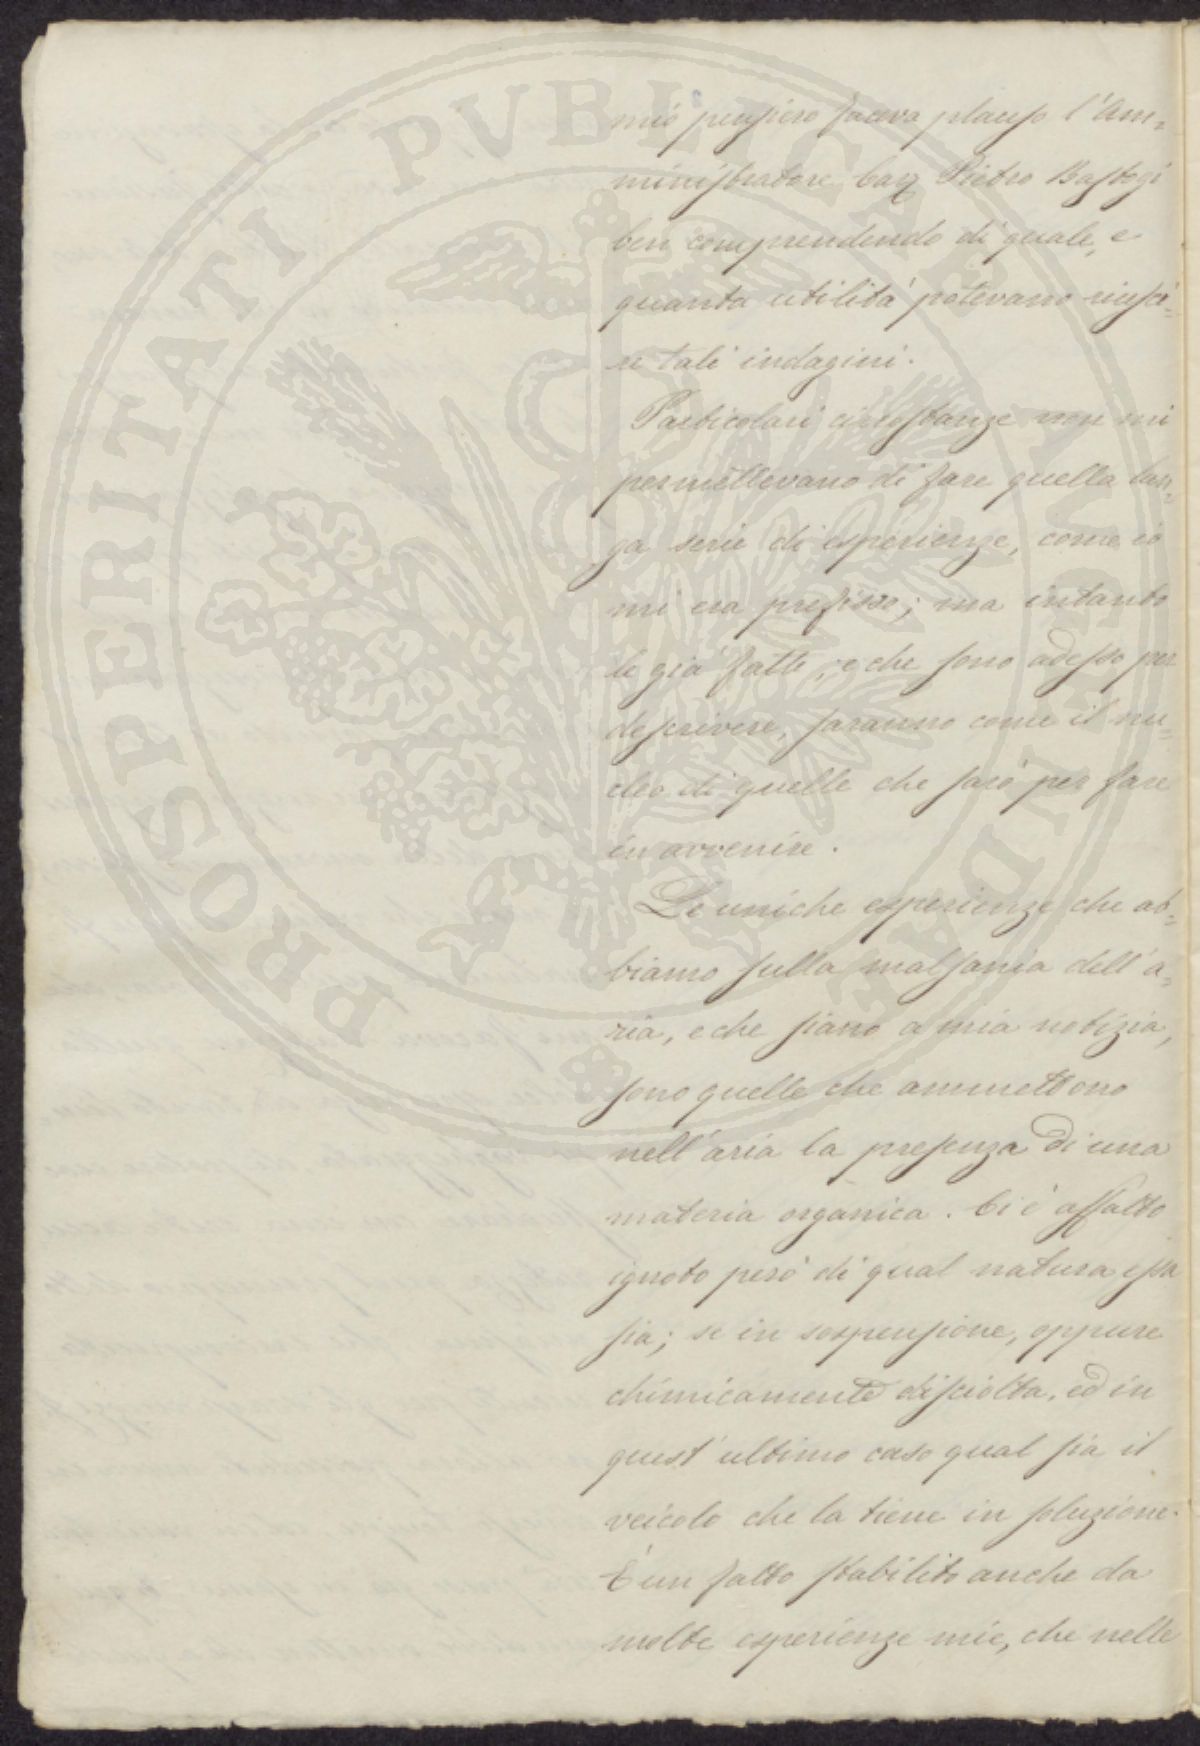 mio pensiero faceva plauso l'Am=
ministratore Cav Pietro Bastogi
ben comprendendo di quale, e
quanta utilità potevano riusci=
re tali indagini.
Particolari circostanze non mi
permettevano di fare quella lun=
ga serie di esperienze, come io
mi era prefisso; ma intanto
le già fatte, e che sono adesso per
descrivere, saranno come il nu=
cleo di quelle che sarò per fare
in avvenire.
Le uniche esperienze che ab=
biamo sulla malsania dell'a=
ria, e che siano a mia notizia,
sono quelle che ammettono
nell'aria la presenza di una
materia organica. Ci è affatto
ignoto però di qual natura essa
sia; se in sospensione, oppure
chimicamente disciolta, ed in
quest'ultimo caso qual sia il
veicolo che la tiene in soluzione.
È un fatto stabilito anche da
molte esperienze mie, che nelle
PROSPERITATI PVBLICAE AVGENDAE